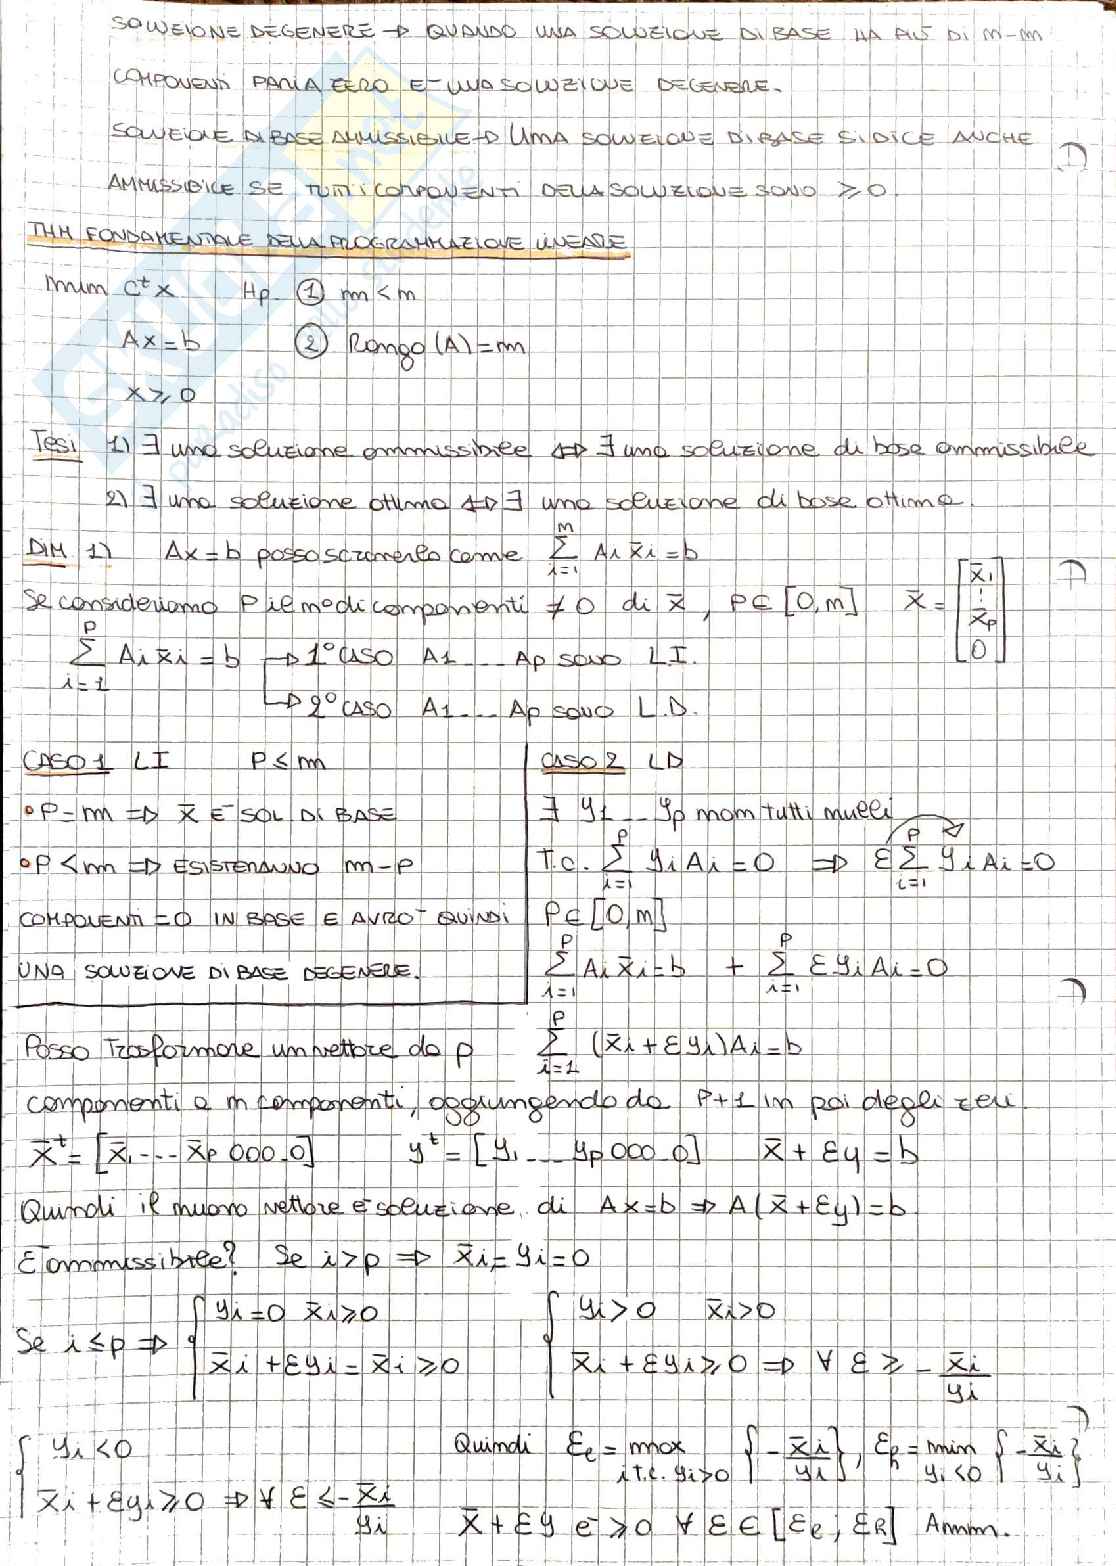 SOLUZIONE DEGENERE → QUANDO UNA SOLUZIONE DI BASE HA PIÙ DI n-m
COMPONENTI PARI A ZERO E' UNA SOLUZIONE DEGENERE.
SOLUZIONE DI BASE AMMISSIBILE → UNA SOLUZIONE DI BASE SI DICE ANCHE
AMMISSIBILE SE TUTTI I COMPONENTI DELLA SOLUZIONE SONO ≥ 0
THM FONDAMENTALE DELLA PROGRAMMAZIONE LINEARE
min cᵗx Hp. ① m < n
Ax = b ② Rango (A) = m
x ≥ 0
Tesi 1) ∃ una soluzione ammissibile ⇔ ∃ una soluzione di base ammissibile
2) ∃ una soluzione ottima ⇔ ∃ una soluzione di base ottima
DIM 1) Ax = b posso scriverlo come Σ_{i=1}^{n} Ai x̄i = b
Se consideriamo P il n° di componenti ≠ 0 di x̄, P ∈ [0, n] x̄ = [x̄1 ⋮ x̄p 0]
Σ_{i=1}^{P} Ai x̄i = b → 1° CASO A1 ... Ap SONO L I.
→ 2° CASO A1 ... Ap SONO L.D.
CASO 1 LI P ≤ m
• P = m ⇒ x̄ E' SOL DI BASE
• P < m ⇒ ESISTERANNO m-P
COMPONENTI = 0 IN BASE E AVRO' QUINDI
UNA SOLUZIONE DI BASE DEGENERE.
CASO 2 LD
∃ y1 ... yp non tutti nulli
T.C. Σ_{i=1}^{P} yi Ai = 0 ⇒ ε Σ_{i=1}^{P} yi Ai = 0
P ∈ [0, n]
Σ_{i=1}^{P} Ai x̄i = b + Σ_{i=1}^{P} ε yi Ai = 0
Posso Trasformare un vettore da p Σ_{i=1}^{P} (x̄i + ε yi) Ai = b
componenti a n componenti, aggiungendo da P+1 in poi degli zeri
x̄ᵗ = [x̄1 ... x̄p 000..0] yᵗ = [y1 ... yp 000..0] x̄ + εy = b
Quindi il nuovo vettore è soluzione di Ax = b ⇒ A(x̄ + εy) = b
E' ammissibile? Se i > p ⇒ x̄i = yi = 0
Se i ≤ p ⇒ { yi = 0 x̄i ≥ 0 { yi > 0 x̄i > 0
x̄i + ε yi = x̄i ≥ 0 x̄i + ε yi ≥ 0 ⇒ ∀ ε ≥ - x̄i/yi
{ yi < 0 Quindi εe = max_{i T.C. yi > 0} {- x̄i/yi}, εR = min_{yi < 0} {- x̄i/yi}
x̄i + ε yi ≥ 0 ⇒ ∀ ε ≤ - x̄i/yi x̄ + εy è ≥ 0 ∀ ε ∈ [εe ; εR] Amm.